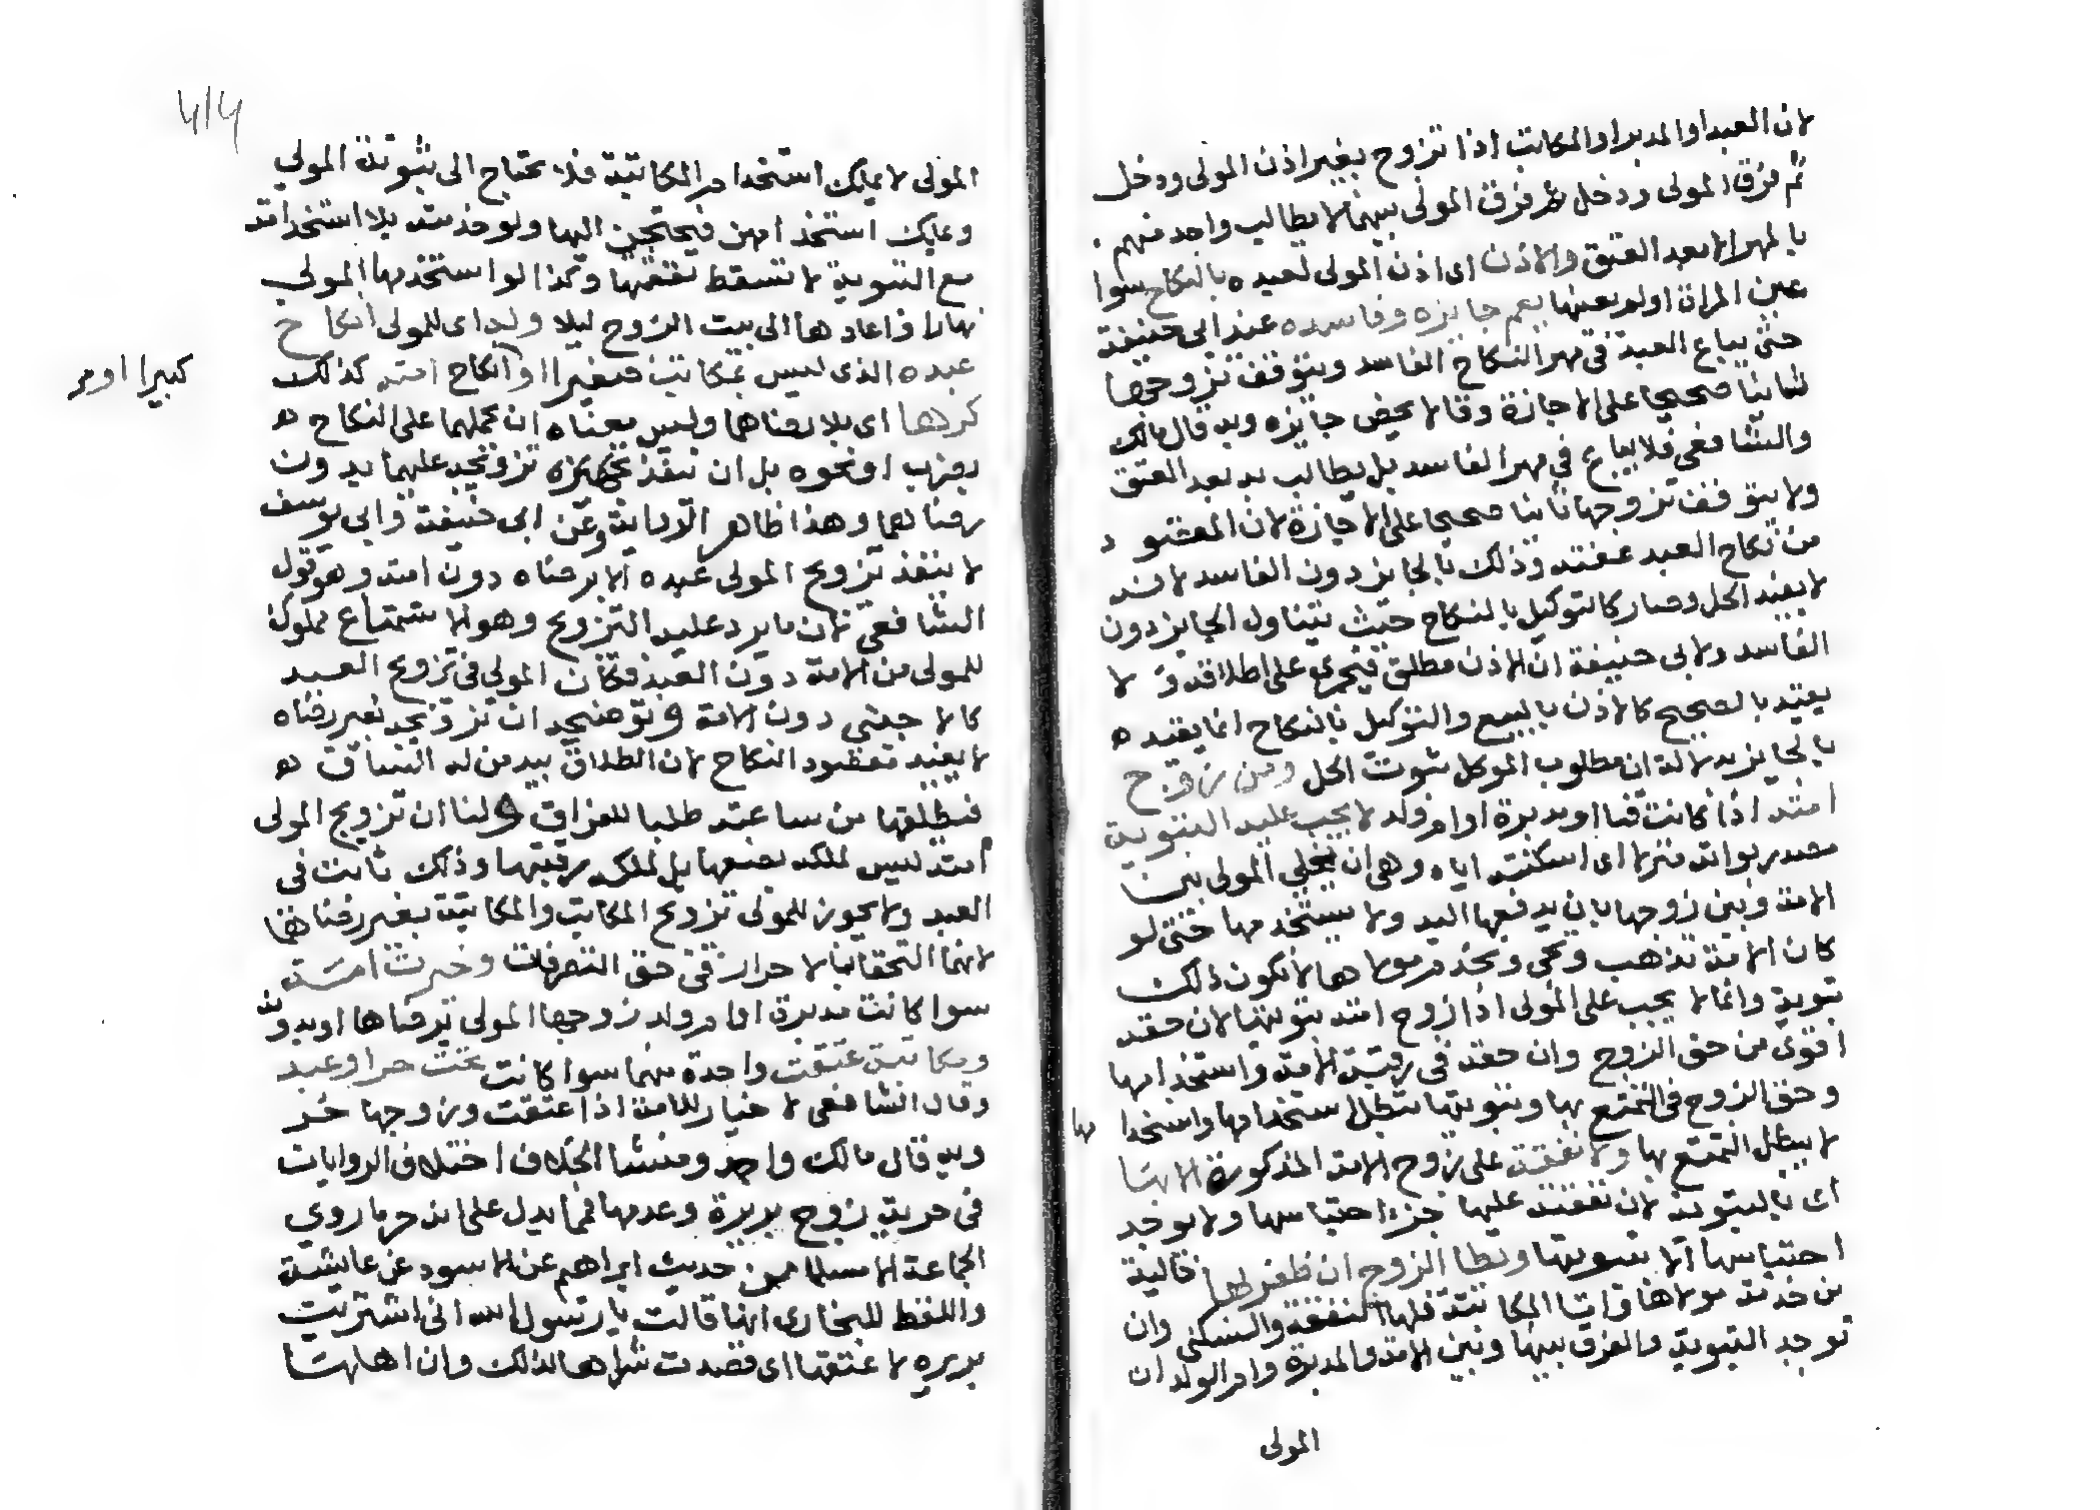 لان العبد او المدبر او المكاتب اذا تزوج بغير اذن المولى ودخل
ثم فرق المولى ودخل ثم فرق المولى بينهما لا يطالب واحد منهم
بالمهر الا بعد العتق والاذن اى اذن المولى لعبده بالنكاح سوا
عين المراة او لم يعينها يعم جايزه وفاسده عند ابى حنيفة
حتى يباع العبد فى مهر النكاح الفاسد ويتوقف تزوجها
ثانيا صحيحا على الاجازة وقالا يخص جايزه وبه قال مالك
والشافعى فلا يباع فى مهر الفاسد بل يطالب به بعد العتق
ولا يتوقف تزوجها ثانيا صحيحا على الاجازة لان المقصود
من نكاح العبد عفته وذلك بالجايز دون الفاسد لانه
لا يفيد الحل وصار كالتوكيل بالنكاح حيث يتناول الجايز دون
الفاسد ولابى حنيفة ان الاذن مطلق فيجرى على اطلاقه و لا
يقيد بالصحيح كالاذن بالبيع والتوكيل بالنكاح انما يقيده
بالجايز لان مطلوب الموكل ثبوت الحل ومن زوج
امته اذا كانت قنا او مدبرة او ام ولد لا يجب عليه التبوية
مصدر بواته منزلا اى اسكنته اياه وهى ان يخلى المولى بين
الامة وبين زوجها بان يدفعها اليه ولا يستخدمها حتى لو
كان الامة تذهب وتجى وتخدم مولاها لا يكون ذلك
تبوية وانما لا يجب على المولى اذا زوج امته تبويتها لان حقه
اقوى من حق الزوج وان حقه فى رقبة الامة واستخدامها
وحق الزوج فى التمتع بها وتبويتها يبطل استخدامها واستخدامها
لا يبطل التمتع بها ولا نفقة على زوج الامة المذكورة الا بها
اى بالتبوية لان نفقته عليها جزا احتباسها ولا يوجد
احتباسها الا بتبويتها ويطا الزوج ان ظفر بها خالية
من خدمة مولاها واما المكاتبة فلها النفقة والسكنى وان
توجد التبوية والفرق بينها وبين الامة والمدبرة وام الولد ان
المولى
المولى لا يملك استخدام المكاتبة فلا يحتاج الى تبوية المولى
ويملك استخدامهن فيحتجن اليها ولو خدمته بلا استخدامه
مع التبوية لا تسقط نفقتها وكذا لو استخدمها المولى
نهارا واعادها الى بيت الزوج ليلا وله اى للمولى انكاح
عبده الذى ليس بمكاتب صغيرا او انكاح امته كذلك
كبيرا او
كرها اى بلا رضاهما وليس معناه ان يحملهما على النكاح
بضرب او نحوه بل ان ينفذ تزويجه عليهما بدون
رضاهما وهذا ظاهر الرواية وعن ابى حنيفة وابى يوسف
لا ينفذ تزويج المولى عبده الا برضاه دون امته وهو قول
الشافعى لان ما يرد عليه التزويج وهو الاستمتاع مملوك
للمولى من الامة دون العبد فكان المولى فى تزويج العبد
كالاجنبى دون الامة وتوضيحه ان تزويجه بغير رضاه
لا يفيد مقصود النكاح لان الطلاق بيد من له الساق
فيطلقها من ساعته طلبا للفراق ولنا ان تزويج المولى
امته ليس لملكه بضعها بل لملكه رقبتها وذلك ثابت فى
العبد ولا يجوز للمولى تزويج المكاتب والمكاتبة بغير رضاهما
لانهما التحقا بالاحرار فى حق التصرفات وخيرت امة
سوا كانت مدبرة او ام ولد زوجها المولى برضاها او بدونه
ومكاتبة عتقت واحدة منهما سوا كانت تحت حر او عبد
وقال الشافعى لا خيار للامة اذا عتقت وزوجها حر
وبه قال مالك واحمد ومنشا الخلاف اختلاف الروايات
فى حرية زوج بريرة وعدمها فمما يدل على انه حر ما روى
الجماعة الا مسلما من حديث ابراهيم عن الاسود عن عايشة
واللفظ للبخارى انها قالت يا رسول الله انى اشتريت
بريره لاعتقها اى قصدت شراها لذلك وان اهلها